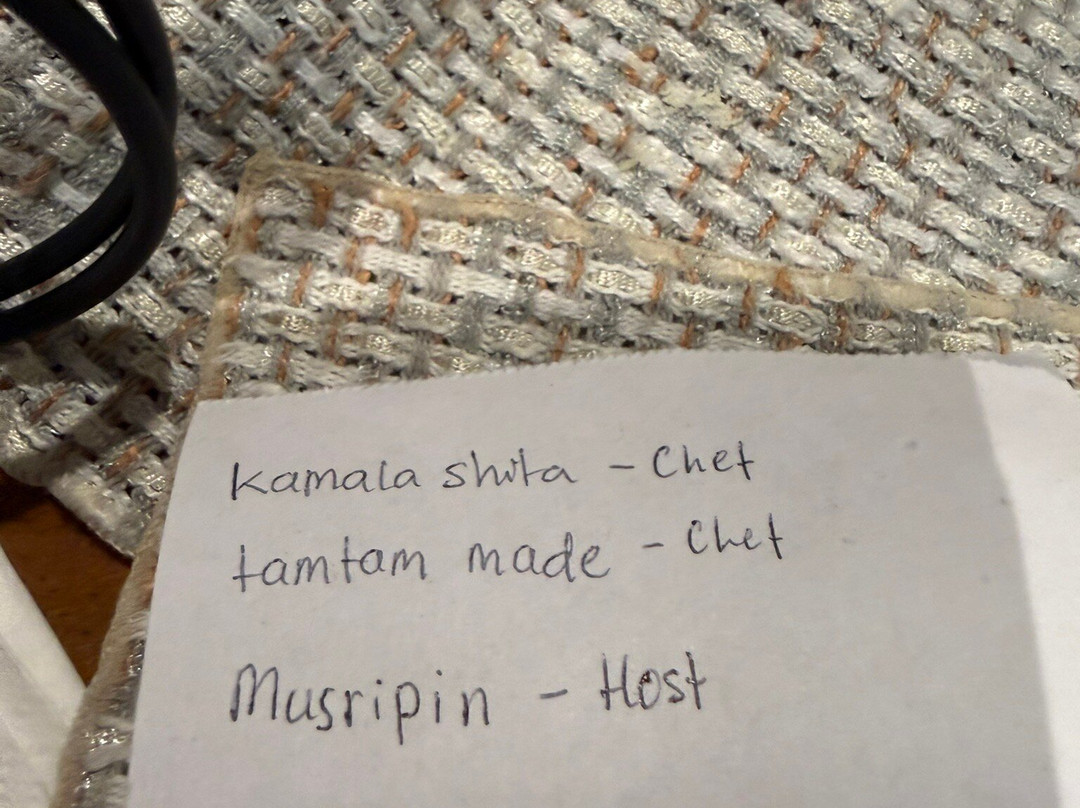 Kamala shita - Chef
tamtam made - Chef
Musripin - Host